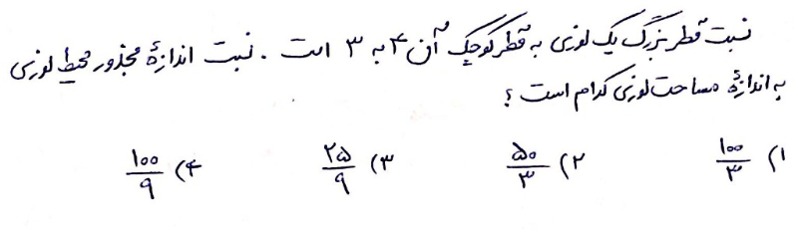 نسبت قطر بزرگ یک لوزی به قطر کوچک آن ۴ به ۳ است . نسبت اندازهٔ مجذور محیط لوزی
به اندازهٔ مساحت لوزی کدام است ؟
۱) ۱۰۰/۳ ۲) ۵۰/۳ ۳) ۲۵/۹ ۴) ۱۰۰/۹